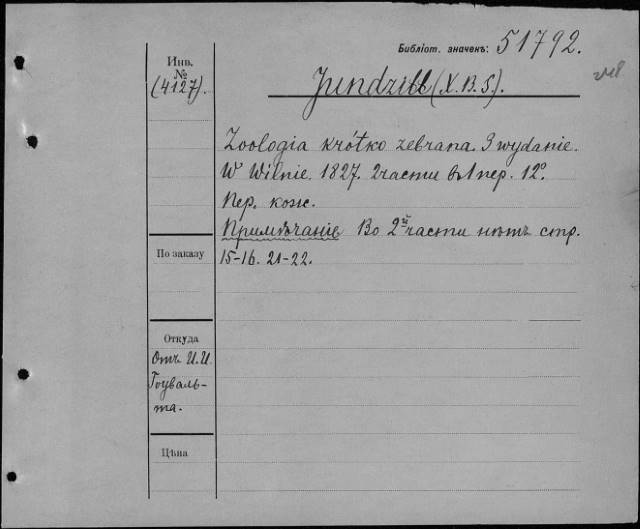 Библіот. значекъ: 51792.
Инв.
№
(4127).
Jundzill (X. B. S.).
Zoologia krótko zebrana. 3 wydanie.
W Wilnie. 1827. 2 части въ 1 пер. 12°.
Пер. кож.
Примѣчаніе Во 2й части нѣтъ стр.
15-16. 21-22.
По заказу
Откуда
Отъ И. И.
Гоуваль-
та.
Цѣна